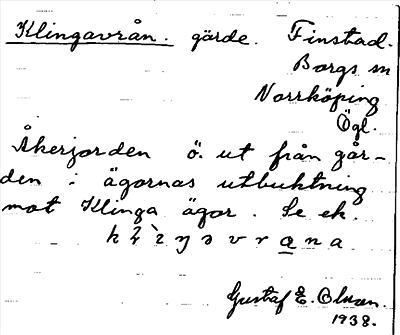 Klingavrån. gärde. Finstad.
Borgs sn
Norrköping
Ögl.
Åkerjorden ö. ut från går-
den i ägornas utbuktning
mot Klinga ägor. Se ek.
Gustaf E.
1938.